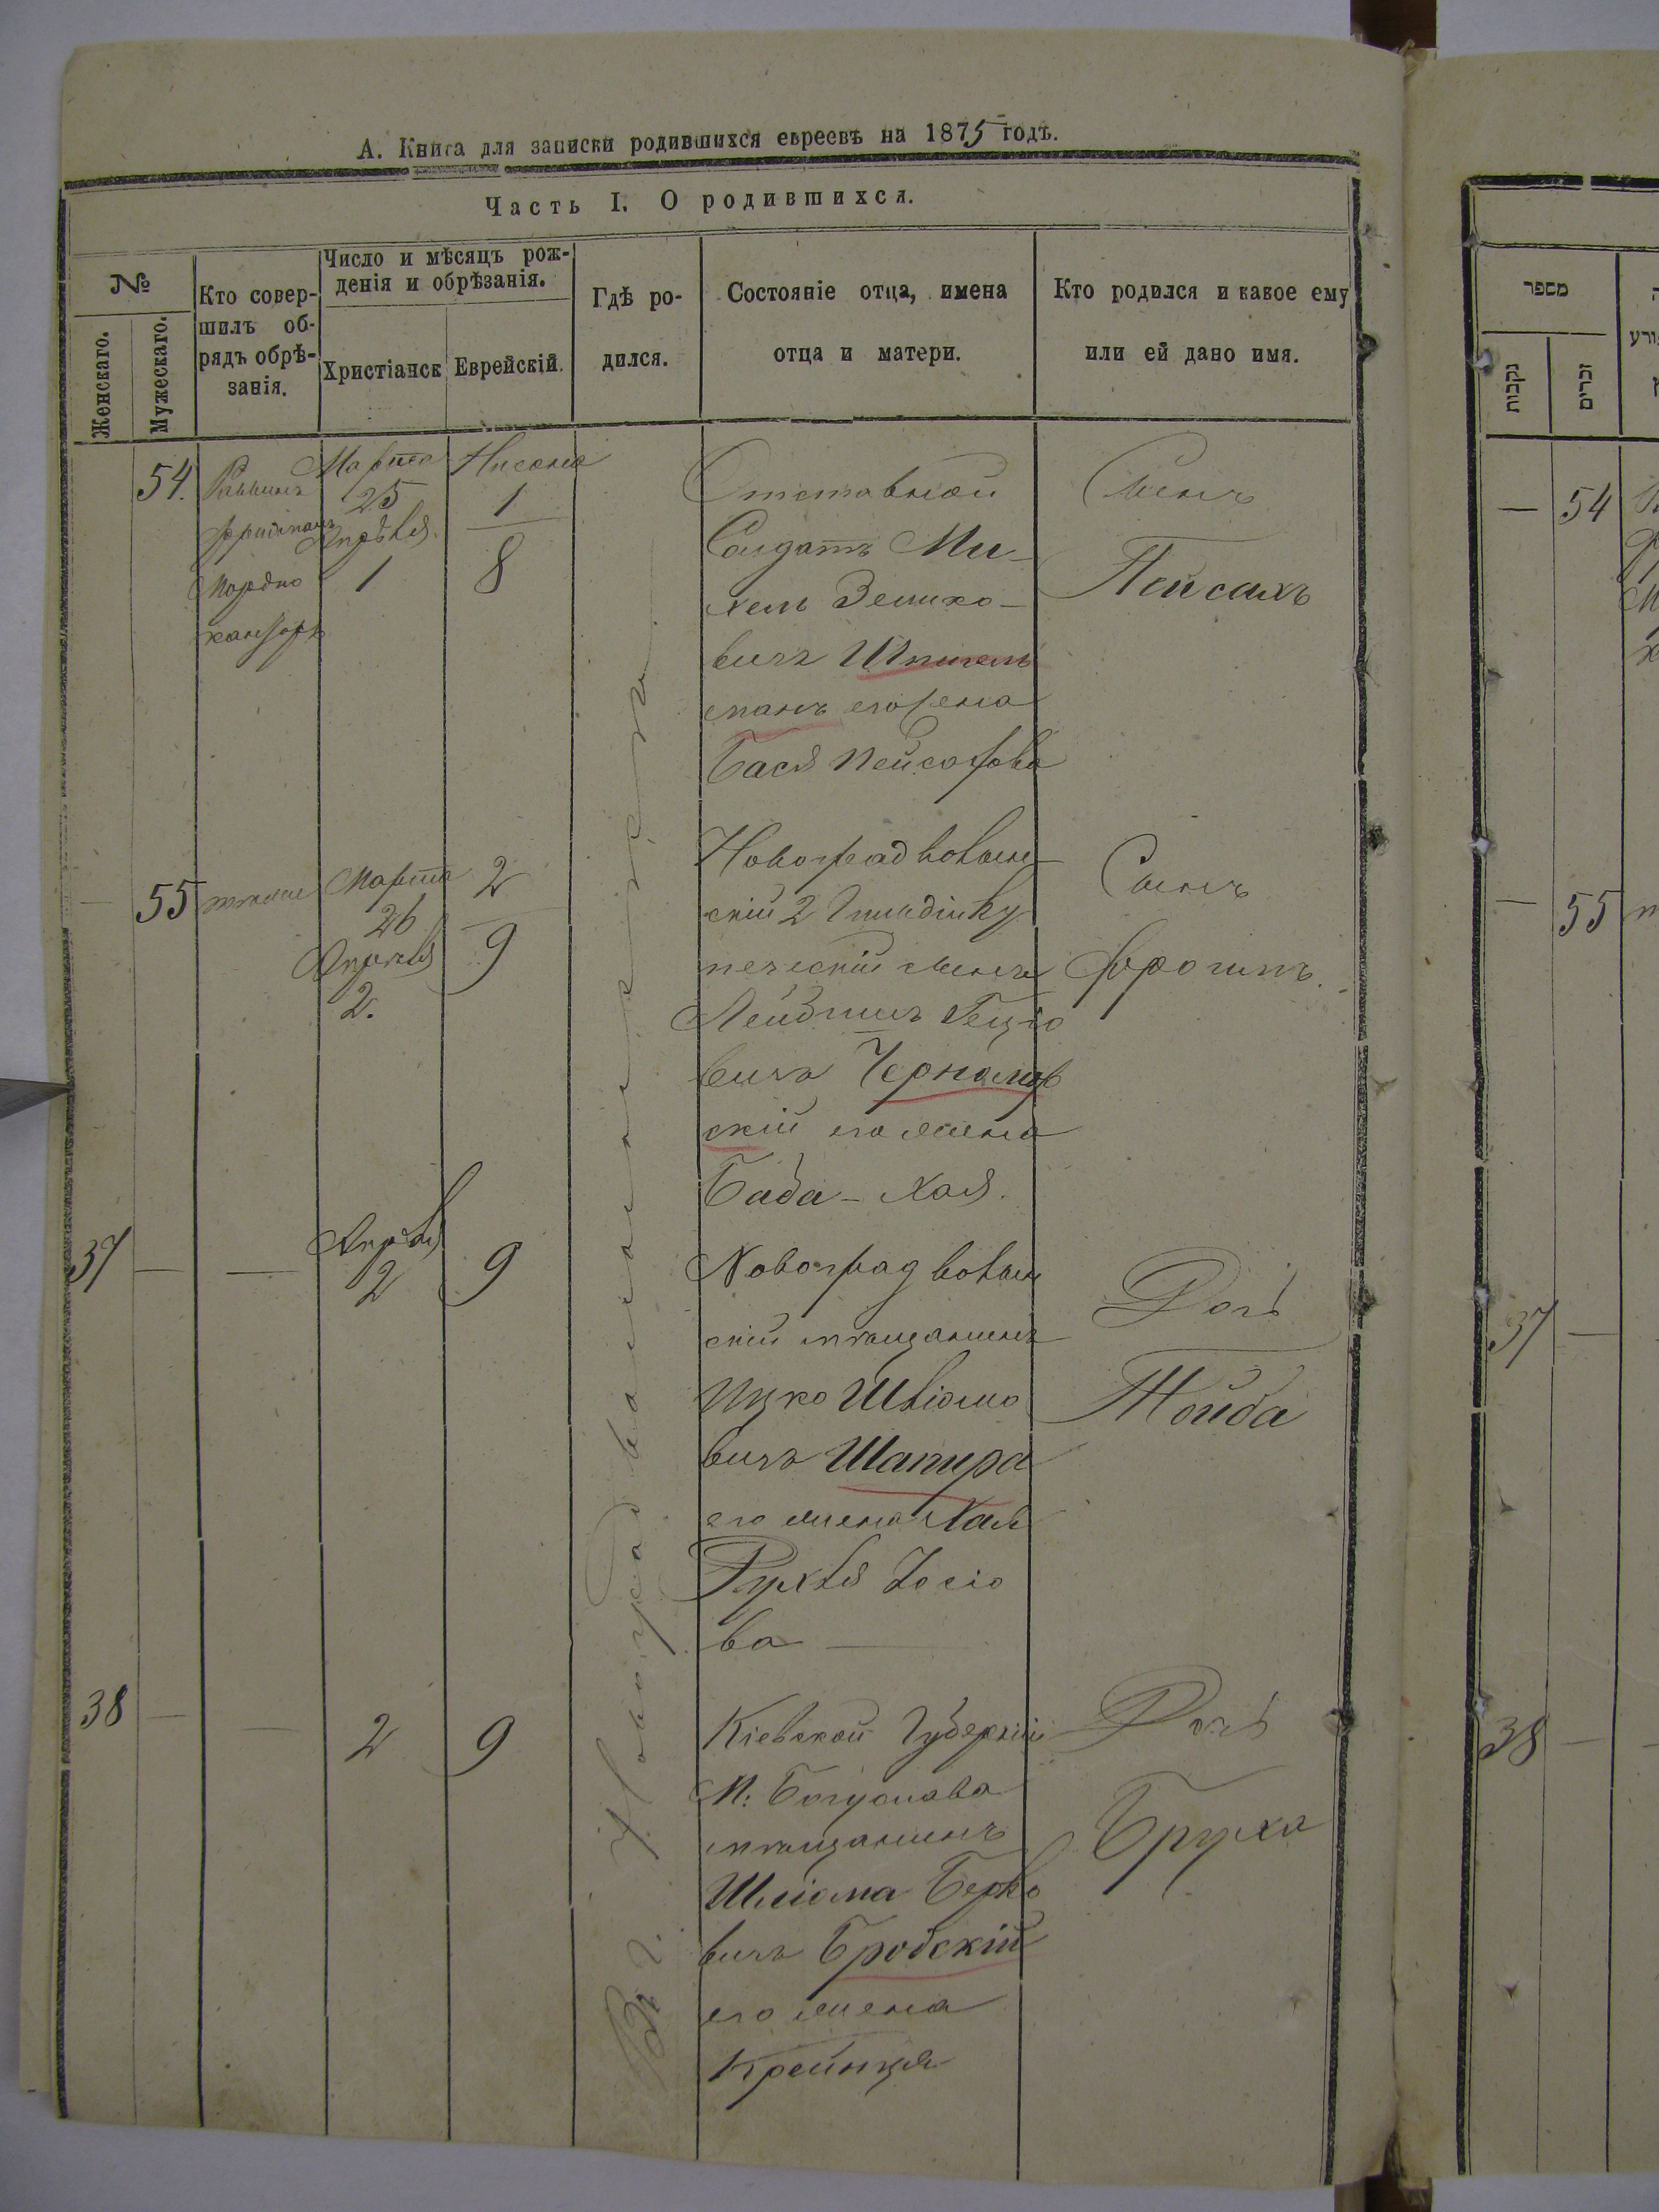 А. Книга для записки родившихся евреевъ на 1875 годъ.
Часть I. О родившихся.
№
Женскаго.
Мужескаго.
Кто совер-
шилъ об-
рядъ обрѣ-
занія.
Число и мѣсяцъ рож-
денія и обрѣзанія.
Христіанск
Еврейскій.
Гдѣ ро-
дился.
Состояніе отца, имена
отца и матери.
Кто родился и какое ему
или ей дано имя.
54.
Раввинъ
Мордко
канторъ
Марта
25
Апрѣля.
1
Нисона
1
8
Отставной
Солдатъ Ми-
хель Зелико-
вичъ Шпигель
манъ его жена
Бася Пейсахова
Сынъ
Пейсахъ
55
тоже
Марта
26
Апрѣля
2.
2
9
Новоградволын-
скій 2 Гильдіи Ку
печескій сынъ
Лейбишъ
вичъ Чернамор
скій его жена
Баба - Хая.
Сынъ
Фроимъ.
37
—
—
Апрѣля
2
9
Новоград волын
скій мѣщанинъ
Ицко Шліомо
вичъ Шапира
его жена Хая
Рухля Іосіо
ва —
Дочь
Тойба
38
—
—
2
9
Кіевской Губерніи
М: Богуслава
мѣщанинъ
Шліома Берко
вичъ Бродскій
его жена
Крейнця
Дочь
Бруха
Въ г. Новоградволынскѣ
מספר
נקבות
זכרים
— 54
— 55
37 —
38 —